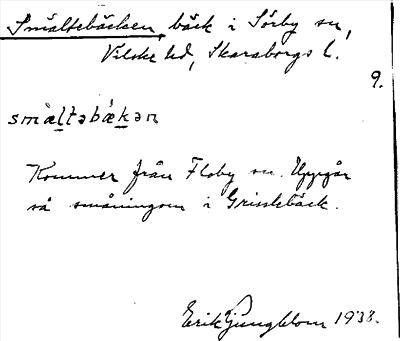 Smältebäcken, bäck i Sörby sn,
Vilske hd, Skaraborgs l.
9.
smæltəbækən
Kommer från Floby sn. Uppgår
så småningom i Grisslebäck.
Erik Ljungblom 1938.